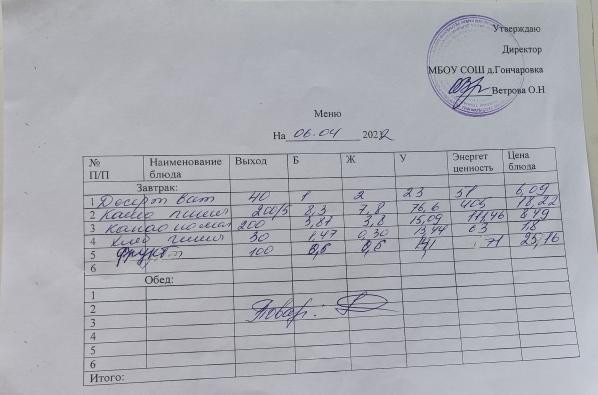 Утверждаю
Директор
МБОУ СОШ д.Гончаровка
Ветрова О.Н
Меню
На 06.04 2022
№ П/П Наименование блюда Выход Б Ж У Энергет ценность Цена блюда
Завтрак:
1 Десерт 40 1 2 23 51 6,09
2 Каша пшен 200/5 8,3 7,8 76,6 405 18,22
3 Какао 200 3,81 3,8 15,09 111,46 8,49
4 Хлеб пшен 30 1,47 0,30 13,44 63 1,8
5 фрукт 100 0,6 0,6 71 25,16
6
Обед:
1
2
3 Повар:
4
5
6
Итого: